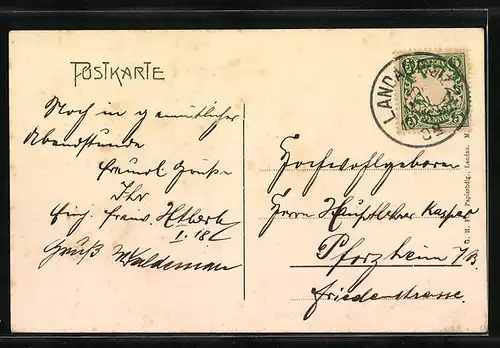 POSTKARTE
Noch in gemütlicher
Abendstunde
freundl. Grüße
Ihr
Gruß Waldemar
BAYERN
5 5
PFENNIG
LANDAU
Hochwohlgeboren
Herrn Hauptlehrer Kaspar
Pforzheim i/B.
Friedenstrasse.
Papierhdlg., Landau.